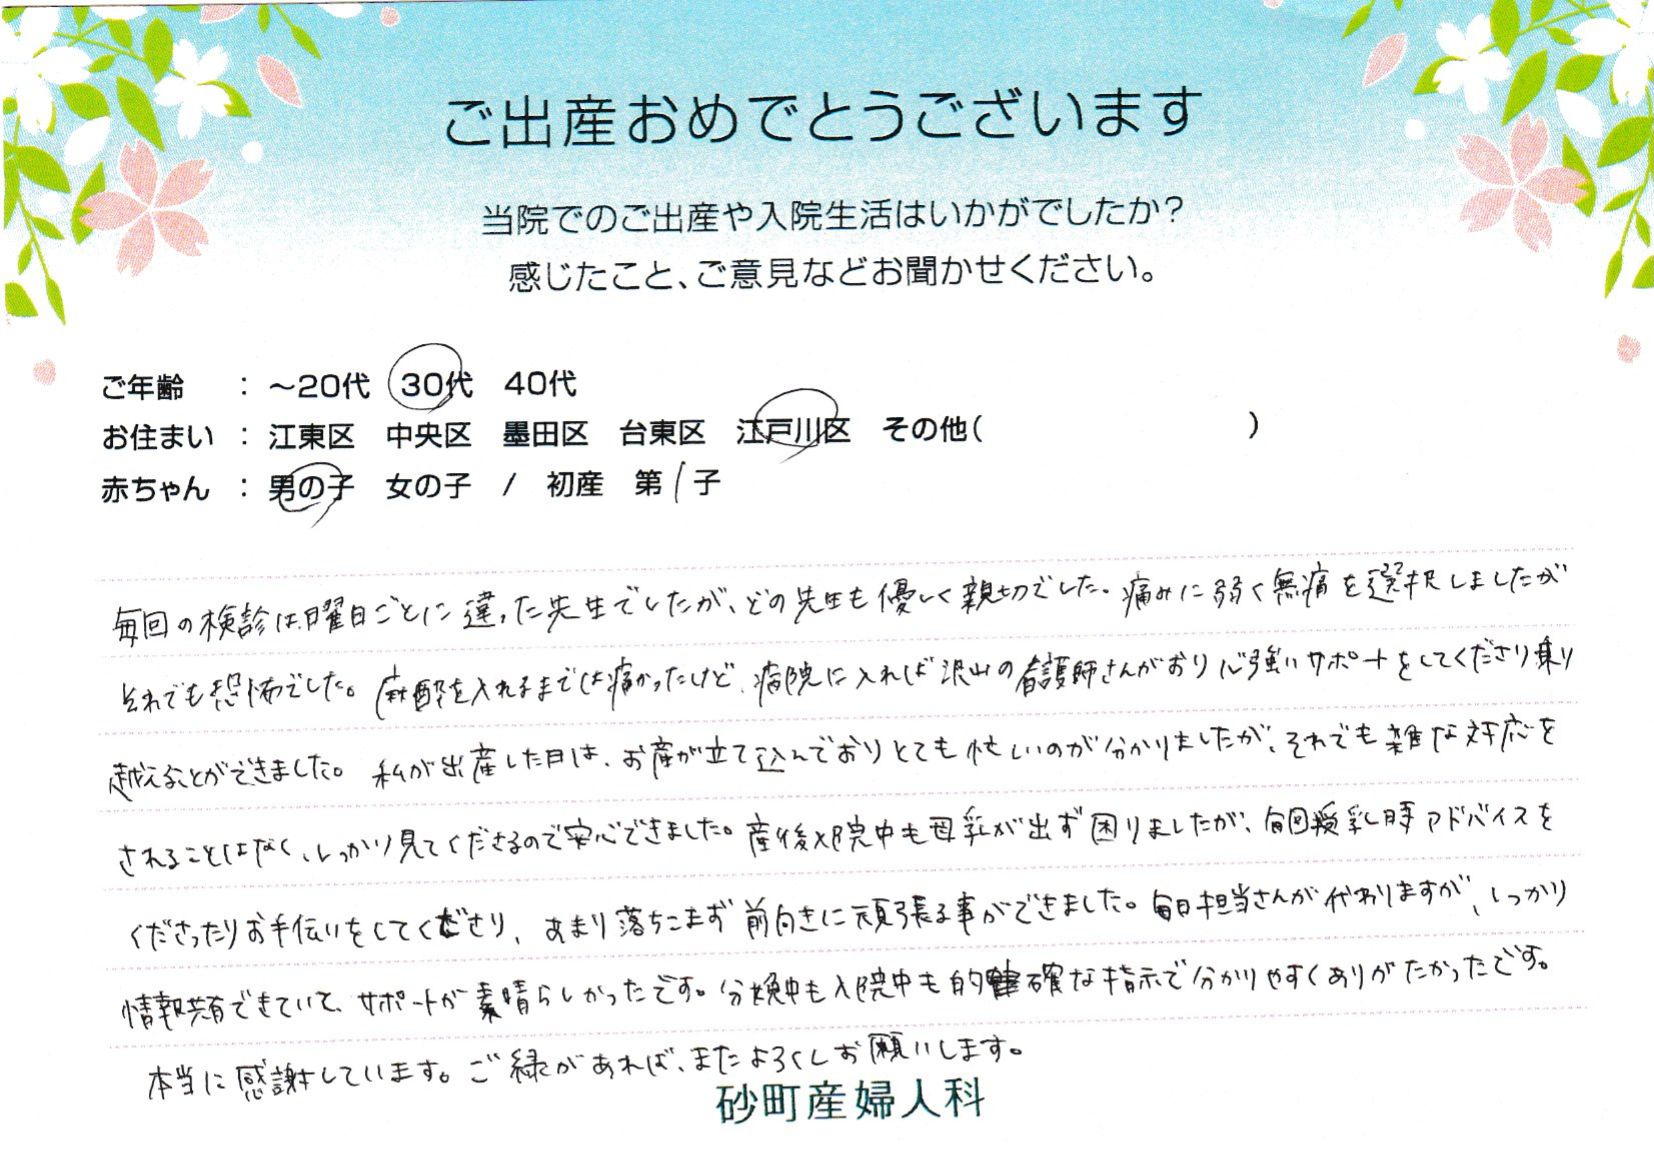 ご出産おめでとうございます
当院でのご出産や入院生活はいかがでしたか?
感じたこと、ご意見などお聞かせください。
ご年齢 : ～20代 30代 40代
お住まい : 江東区 中央区 墨田区 台東区 江戸川区 その他( )
赤ちゃん : 男の子 女の子 / 初産 第1子
毎回の検診は曜日ごとに違った先生でしたが、どの先生も優しく親切でした。痛みに弱く無痛を選択しましたが
それでも恐怖でした。麻酔を入れるまでは痛かったけど、病院に入れば沢山の看護師さんがおり心強いサポートをしてくださり乗り
越えることができました。私が出産した日は、お産が立て込んでおりとても忙しいのが分かりましたが、それでも雑な対応を
されることはなく、しっかり見てくださるので安心できました。産後入院中も母乳が出ず困りましたが、毎回授乳時アドバイスを
くださったりお手伝いをしてくださり、あまり落ちこまず前向きに頑張る事ができました。毎日担当さんが代わりますが、しっかり
情報共有できていて、サポートが素晴らしかったです。分娩中も入院中も的確な指示で分かりやすくありがたかったです。
本当に感謝しています。ご縁があれば、またよろくしお願いします。
砂町産婦人科